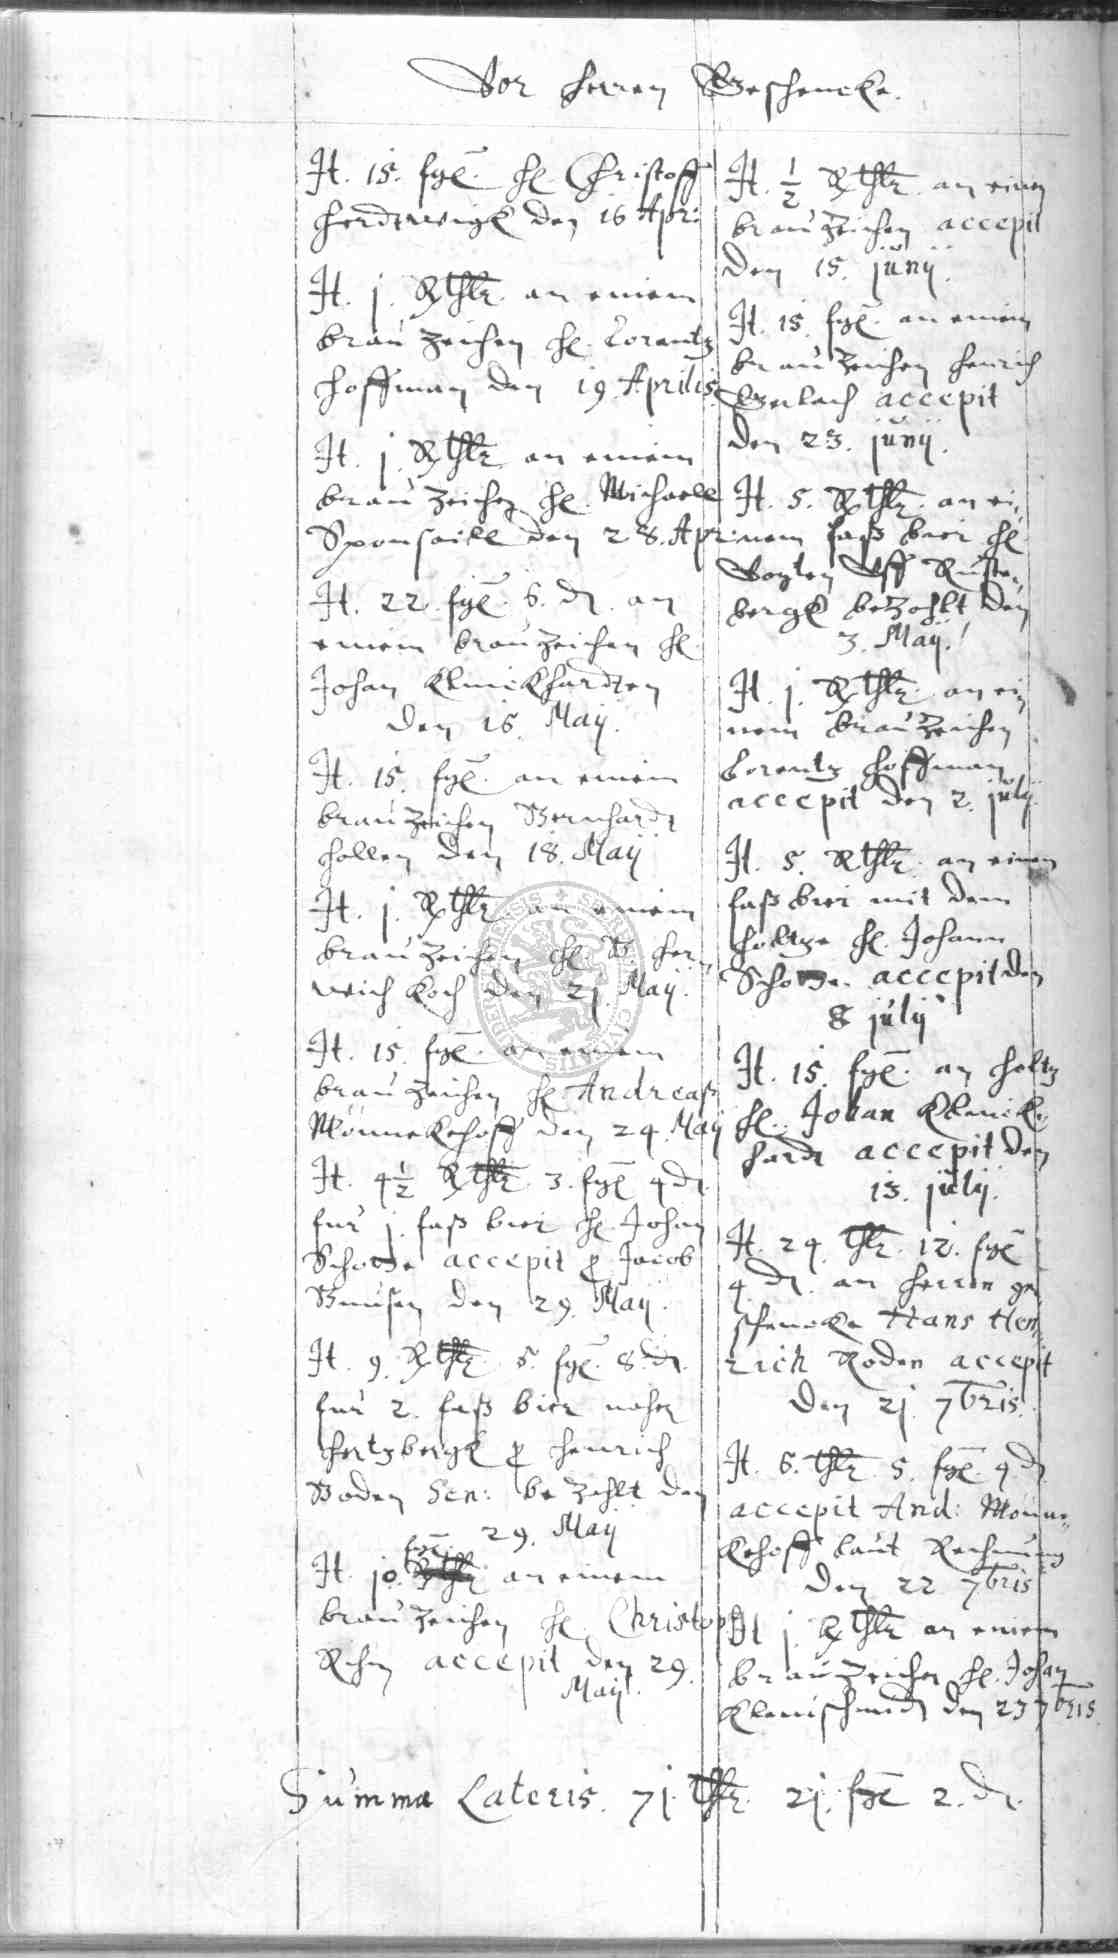 Vor Herren Geschencke.
It. 15. sgl. H. Christoff
Herdtwigk den 16 Apri:
It. j. Rthlr. an einem
brau Zeichen H. Lorentz
Hoffman den 19. Aprilis
It. j. Rthlr. an einem
brau Zeichen H. Michaell
Sponsaill den 28. Apr:
It. 22. sgl. 6. d. an
einem brau Zeichen H.
Johan Klinckhardten
den 16. Maij.
It. 15. sgl. an einem
brau Zeichen Bernhardt
Hollen den 18. Maij
It. j. Rthlr. an einem
brau Zeichen H. B. Hen
rich Koch den 2j. Maij.
It. 15. sgl. an einem
brau Zeichen H. Andreaß
Mönnekehoff den 24. Maij
It. 4 1/2 Rthlr. 3. sgl. 4 d.
fur j. faß bier H. Johan
Schotte accepit p Jacob
den 29. Maij.
It. 9. Rthlr. 5. sgl. 8. d.
fur 2. faß bier naher
Hertzbergk p Henrich
Boden Sen: bezahlt den
29. Maij
sgl.
It. jo. an einem
brau Zeichen H. Christoph
accepit den 29.
Maij.
It. 1/2 Rthlr. an einen
brau Zeichen accepit
den 15. junij.
It. 15. sgl. an einem
brau Zeichen Henrich
Gerlach accepit
den 23. junij.
It. 5. Rthlr. an ei„
nem faß bier H.
Vogten Uff Ruste„
bergk bezahlt den
3. Maij.
It. j. Rthlr. an ei
nem brau Zeichen
Lorentz Hoffman
accepit den 2. julij
It. 5. Rthlr. an einem
faß bier mit dem
Holtze H. Johann
Schotte. accepit den
8 julij
It. 15. sgl. an Holtz
H. Johan Klincke„
hardt accepit den
13. julij.
It. 24. thlr. 12. sgl
4. d. an Herren ge
schencke Hans Hen„
rich Roden accepit
den 2j. 7bris.
It. 6. thlr. 5. sgl. 4 d
accepit And: Mönne„
kehoff laut Rechnung
den 22 7bris
It j. Rthlr an einem
brau Zeichen H. Johan
Kleinschmidt den 23 7bris
Summa Lateris. 7j. thlr. 2j. sgl 2. d.